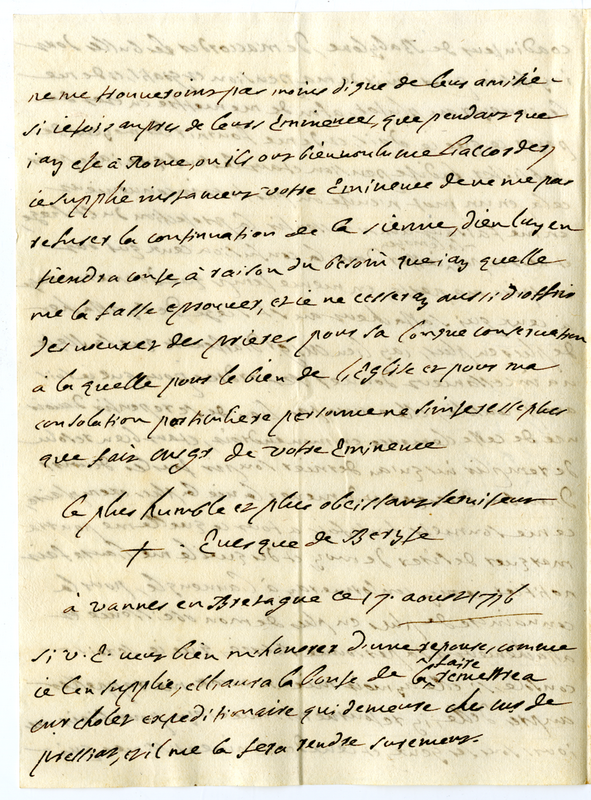 ne me trouveroint pas moins digne de leur amitié
si ietois aupres de leurs Eminences, que pendant que
iay esté à Rome, ou ils ont bien voulu me l'accorder
ie supplie instament votre Eminence de ne me pas
refuser la continuation de la sienne, dieu luy en
tiendra conte, à raison du besoin que iay quelle
me la fasse eprouver, et ie ne cesseray aussi d'offrir
des vœux et des prieres pour sa longue conservation
à la quelle pour le bien de l'Eglise et pour ma
consolation particuliere personne ne s'interesse plus
que fait de votre Eminence
le plus humble et plus obeissant serviteur
+ Evesque de
à vannes en Bretagne ce 17. aoust
si v. E. veut bien m'honorer d'une reponse, comme
ie l'en supplie, elle aura la bonté de la faire remettre a
mr cholet expeditionaire qui demeure ches de
et il me la fera rendre surement.